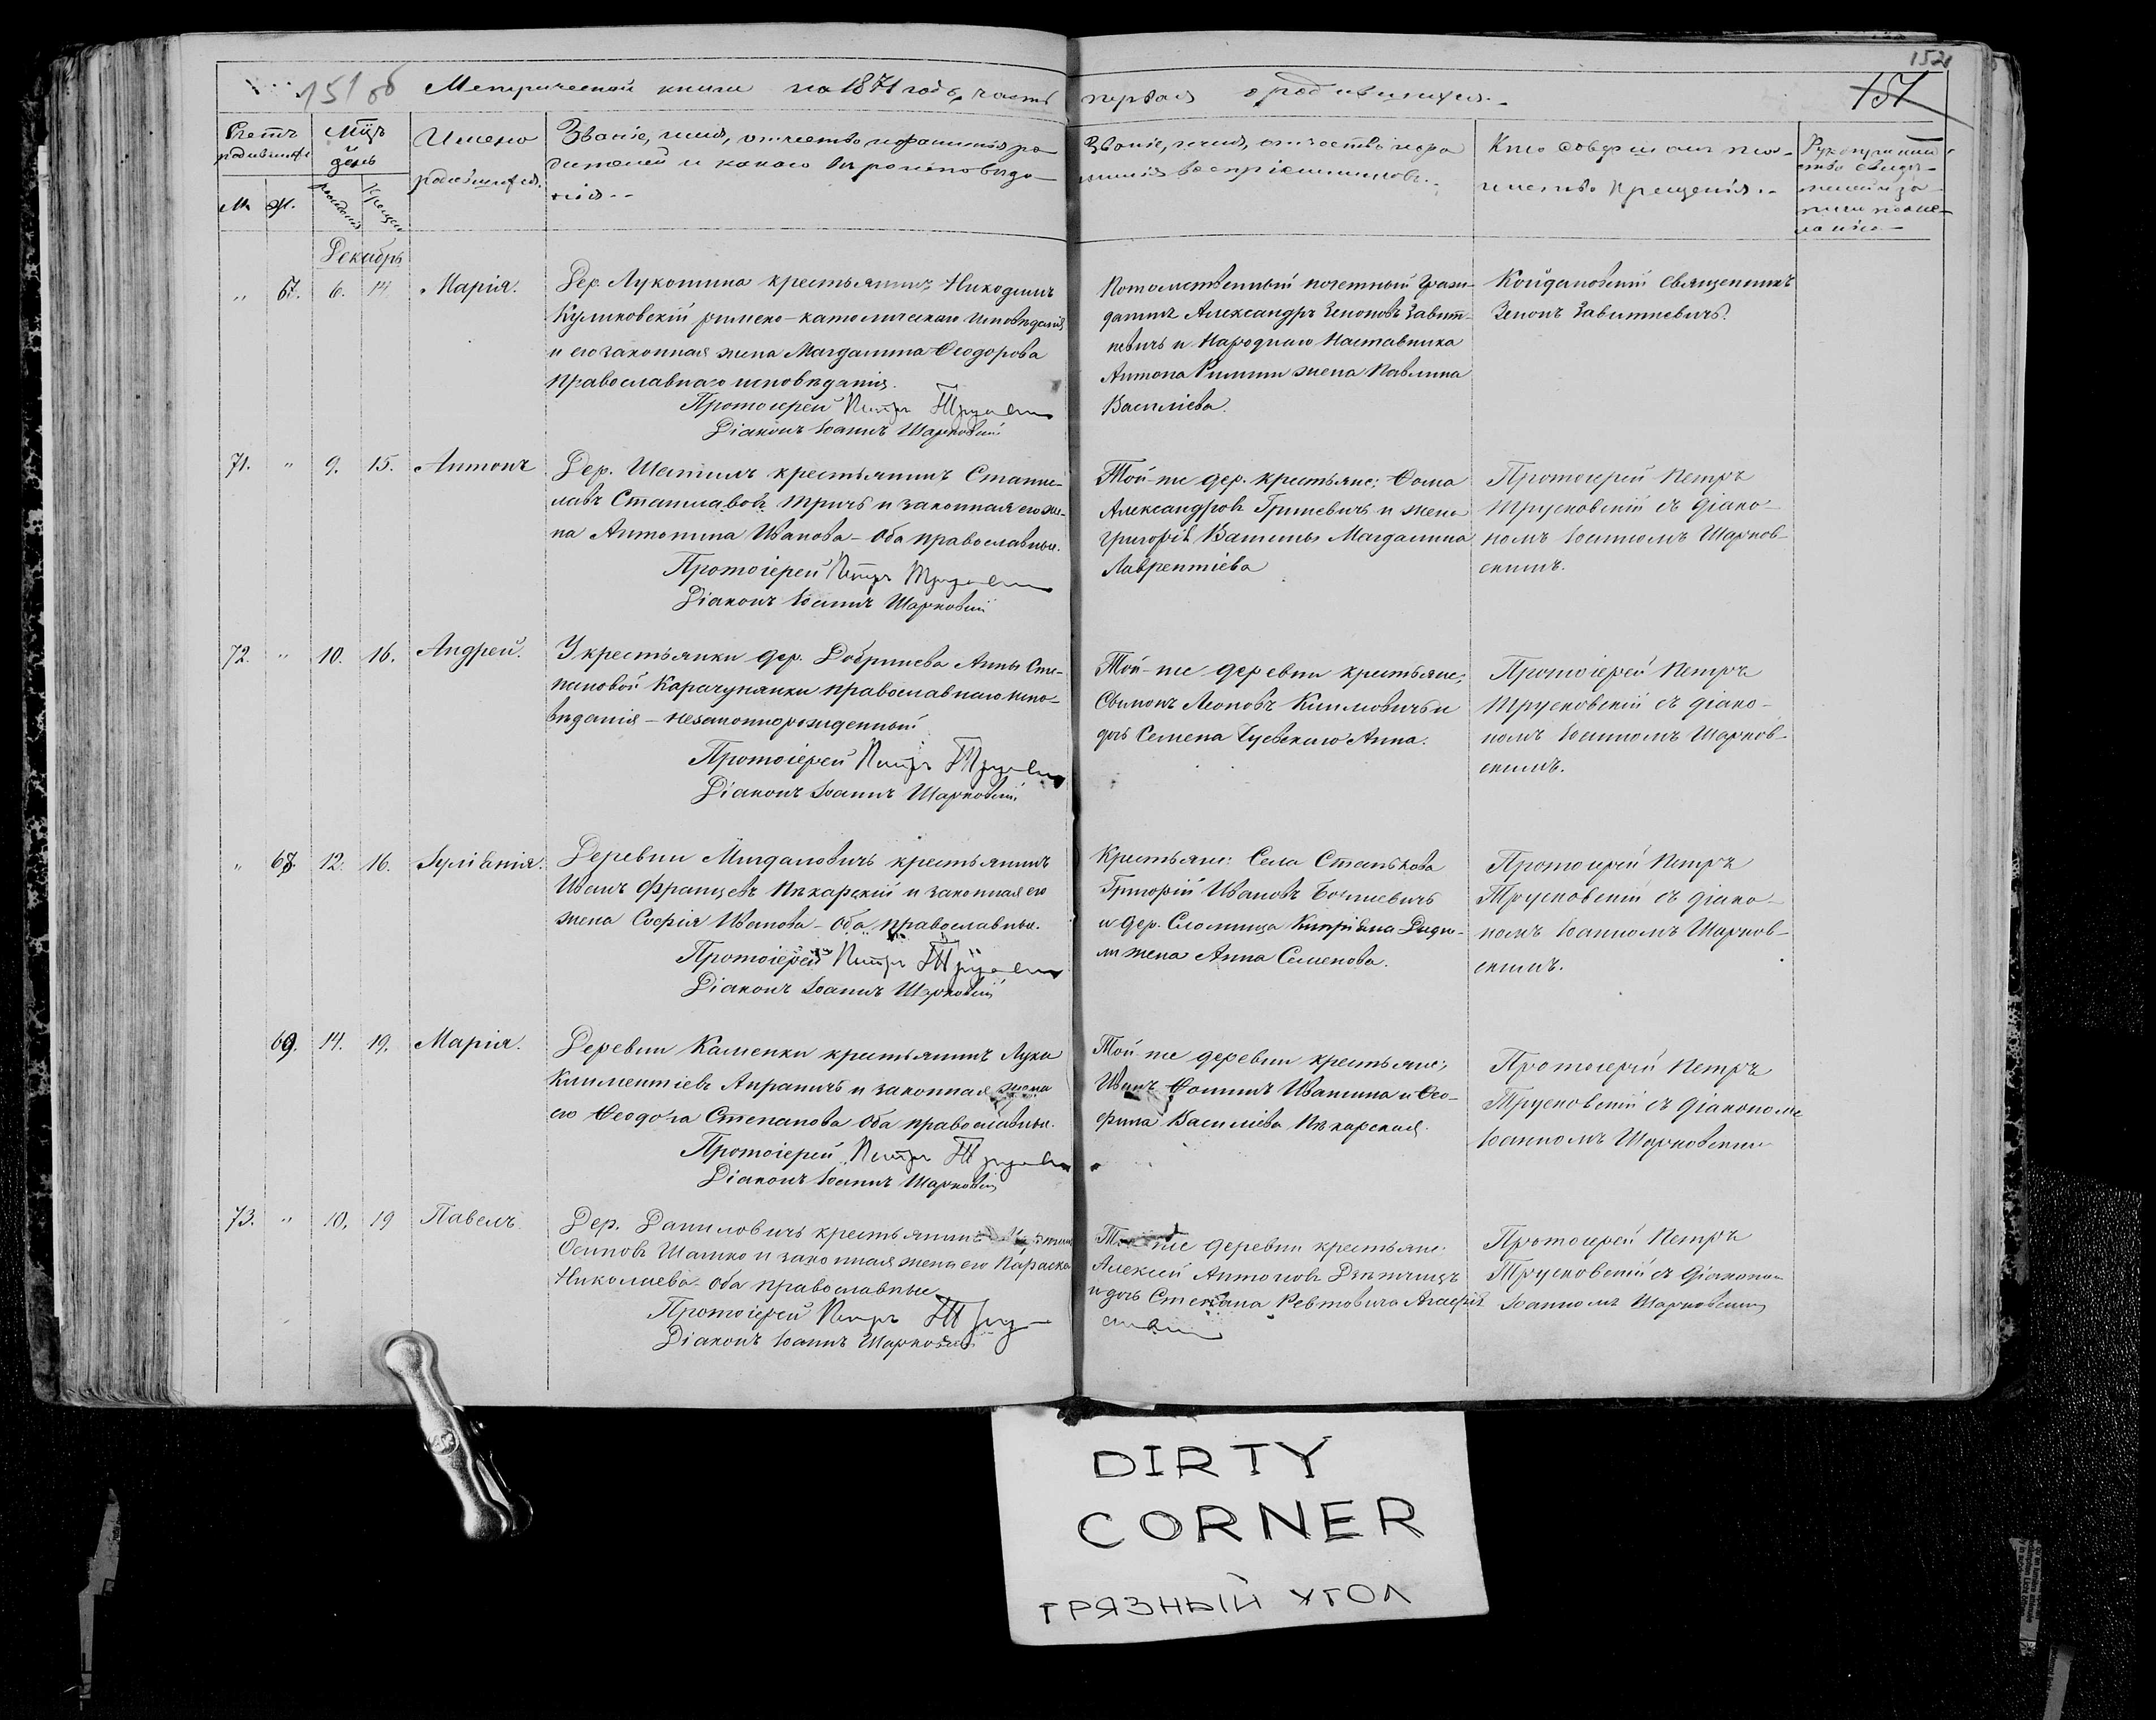 151 об Метрической книги на 1871 годъ, часть первая о родившихся.
152
151
Счетъ родившихся
Мѣсяцъ день
Имена родившихся.
Званіе, имя, отчество и фамилія ро-
дителей и какого вѣроисповѣда-
нія
Званіе, имя, отчество и фа-
милія воспріемниковъ.
Кто совершалъ таи-
инство крещенія.
Рукоприклад
ство свидѣ-
телей за-
писи по же-
ланію
М. Ж. рожденія крещен
Декабрь
" 67. 6. 14 Марія.
Дер. Лукошина крестьянинъ Никодимъ
Куликовскій римско-католическаго исповѣданія
и его законная жена Магдалина Ѳеодорова
православнаго исповѣданія.
Протоіерей Петръ
Діаконъ Іоаннъ Шарковскій
Потомственный почетный граж-
данинъ Александръ Зеноновъ Завит-
невичъ и Народнаго Наставника
Антона жена Павлина
Василіева.
Койдановскій священникъ
Зенонъ Завитневичъ.
71. " 9. 15. Антонъ
Дер. крестьянинъ Станис-
лавъ Станиславовъ Тричъ и законная его же-
на Антонина Иванова - Оба православные.
Протоіерей Петръ
Діаконъ Іоаннъ Шарковскій
Той-же дер. крестьяне: Ѳома
Александровъ Гриневичъ и жена
Григорія Магдалина
Лаврентіева
Протоіерей Петръ
Трусковскій съ діако-
номъ Іоанномъ Шарков-
скимъ.
72. " 10. 16. Андрей.
У крестьянки дер. Добринева Анны Сте-
пановой Карачунянки православнаго испо-
вѣданія - незаконнорожденный
Протоіерей Петръ
Діаконъ Іоаннъ Шарковскій
Той-же деревни крестьяне:
Климовичъ и
дочь Семена Анна.
Протоіерей Петръ
Трусковскій съ діако-
номъ Іоанномъ Шарков-
скимъ.
" 68. 12. 16. Іуліанія.
Деревни крестьянинъ
Иванъ Францевъ Пѣкарскій и законная его
жена Софія Иванова - Оба православные.
Протоіерей Петръ
Діаконъ Іоаннъ Шарковскій
Крестьяне: Села Станькова
Григорій Ивановъ
и дер. Кипріана
ли жена Анна Семенова.
Протоіерей Петръ
Трусковскій съ діако-
номъ Іоанномъ Шарков-
скимъ.
69. 14. 19. Марія.
Деревни Каменки крестьянинъ Лука
Климентіевъ и законная жена
его Ѳеодора Степанова Оба православные.
Протоіерей Петръ
Діаконъ Іоаннъ Шарковскій
Той-же деревни крестьяне:
Иванъ Ѳоминъ и Ѳео-
фила Василіева Пѣкарская.
Протоіерей Петръ
Трусковскій съ діакономъ
Іоанномъ Шарковскимъ
73. " 10. 19 Павелъ.
Дер. Даниловичъ крестьянинъ
Осиповъ Шашко и законная жена его Параскева
Николаева Оба православные.
Протоіерей Петръ
Діаконъ Іоаннъ Шарковскій
же деревни крестьяне:
Алексій Антоновъ
и дочь Степана
Протоіерей Петръ
Трусковскій съ діакономъ
Іоанномъ Шарковскимъ
DIRTY
CORNER
ГРЯЗНЫЙ УГОЛ